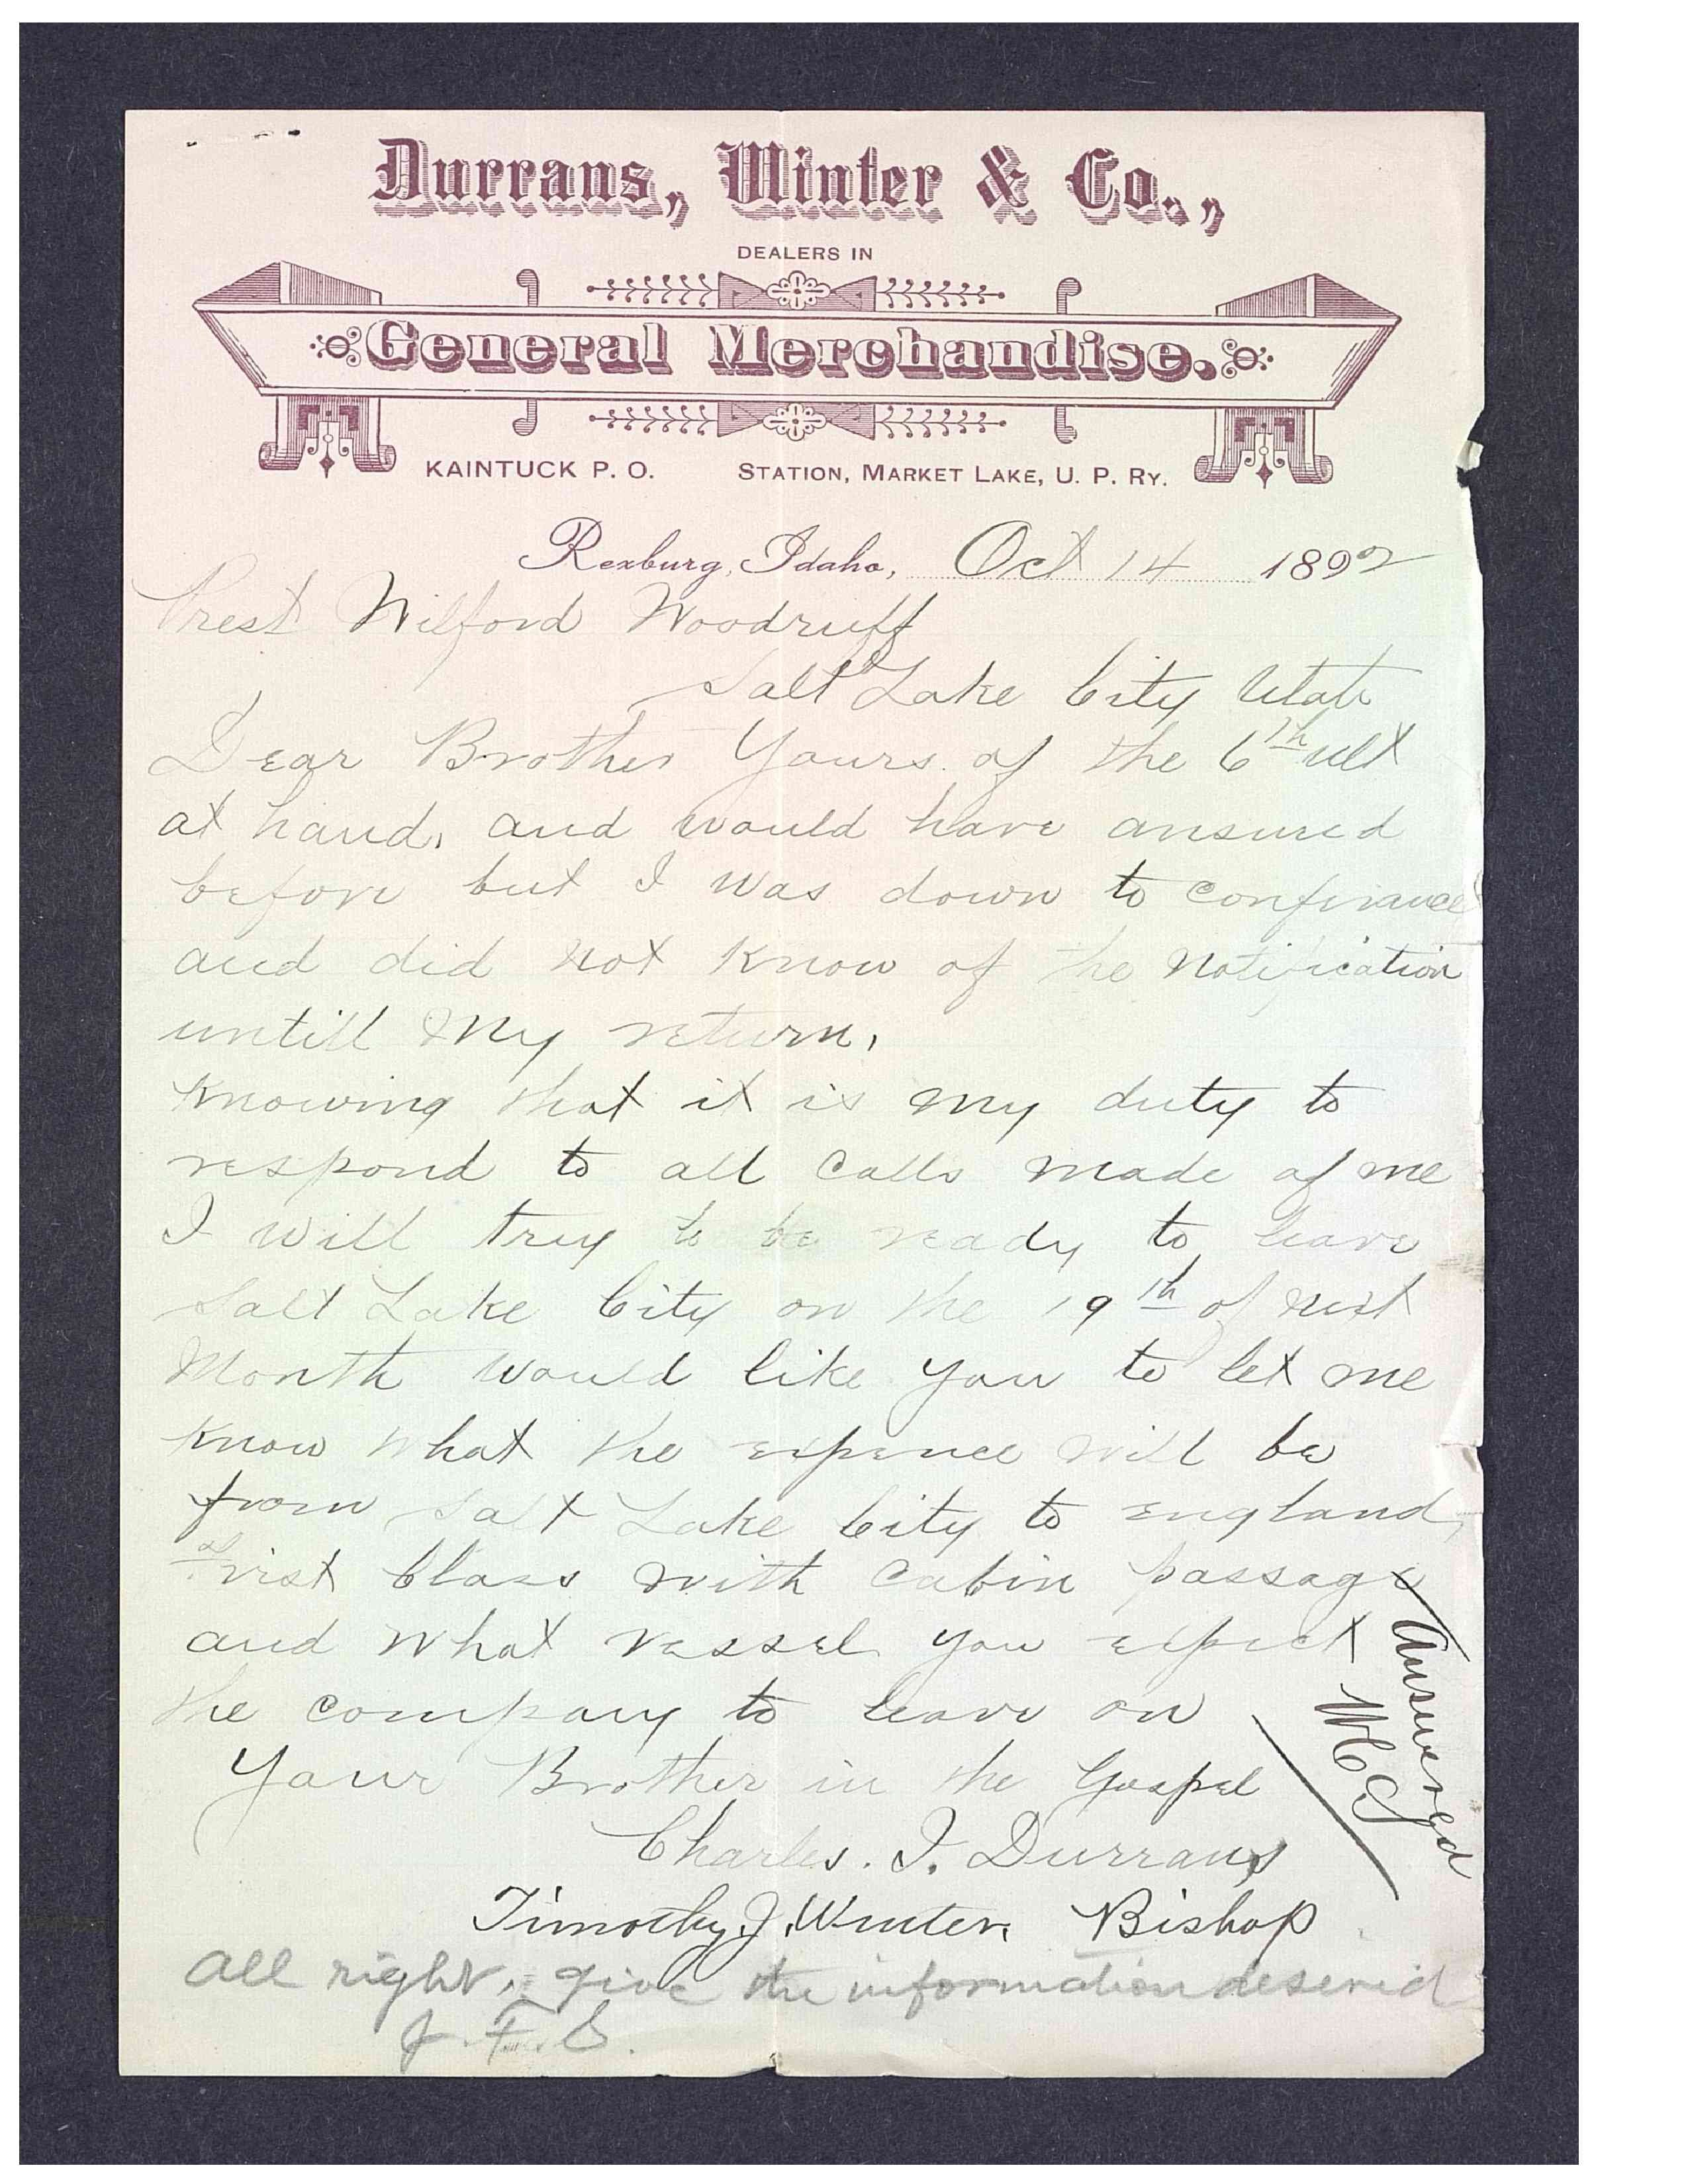 Durrans, Winter & Co.,
DEALERS IN
General Merchandise.
KAINTUCK P. O. STATION, MARKET LAKE, U. P. RY.
Rexburg, Idaho, Oct 14 1892
Prest Wilford Woodruff
Salt Lake City Utah
Dear Brother Yours of the 6th ult
at hand, and would have ansured
before but I was down to confirance
and did not Know of the Notification
untill My return,
Knowing that it is my duty to
respond to all calls made of me
I will try to be ready to leave
Salt Lake City on the 19th of next
Month would like you to let me
Know what the expence will be
from Salt Lake City to England,
First Class with cabin passage
and what vessel you expect
the company to leave on
Your Brother in the Gospel
Charles. I. Durrans
Timothy J. Winter, Bishop
All right, give the information deserid
J. F. S.
Answered